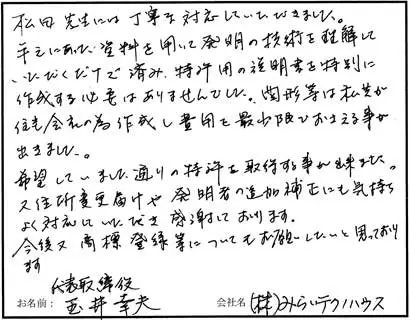 松田先生には丁寧な対応していただきました。
手元にあった資料を用いて発明の技術を理解して
いただくだけで済み、特許用の説明書を特別に
作成する必要はありませんでした。図形等は私共が
住宅会社の為作成し費用を最少限でおさえる事が
出きました。
希望していました通りの特許を取得する事が出来ました。
又住所変更届けや発明者の追加補正にも気持ち
よく対応していただき感謝しております。
今後又商標登録等についてもお願いしたいと思っており
ます
代表取締役
お名前: 玉井幸夫 会社名 (株)みらいテクノハウス